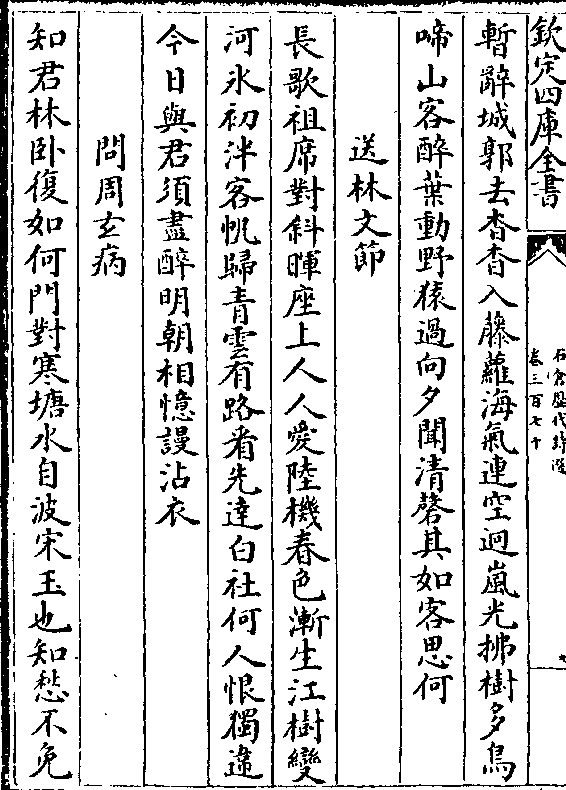 欽定四庫全書
石倉歷代詩選
卷三百七十
暫辭城郭去杳杳入藤蘿海氣連空迥嵐光拂樹多鳥
啼山客醉葉動野猿過向夕聞清磬其如客思何
送林文節
長歌祖席對斜暉座上人人愛陸機春色漸生江樹變
河氷初泮客帆歸青雲有路看先達白社何人恨獨違
今日與君須盡醉明朝相憶謾沾衣
問周玄病
知君林卧復如何門對寒塘水自波宋玉也知愁不免